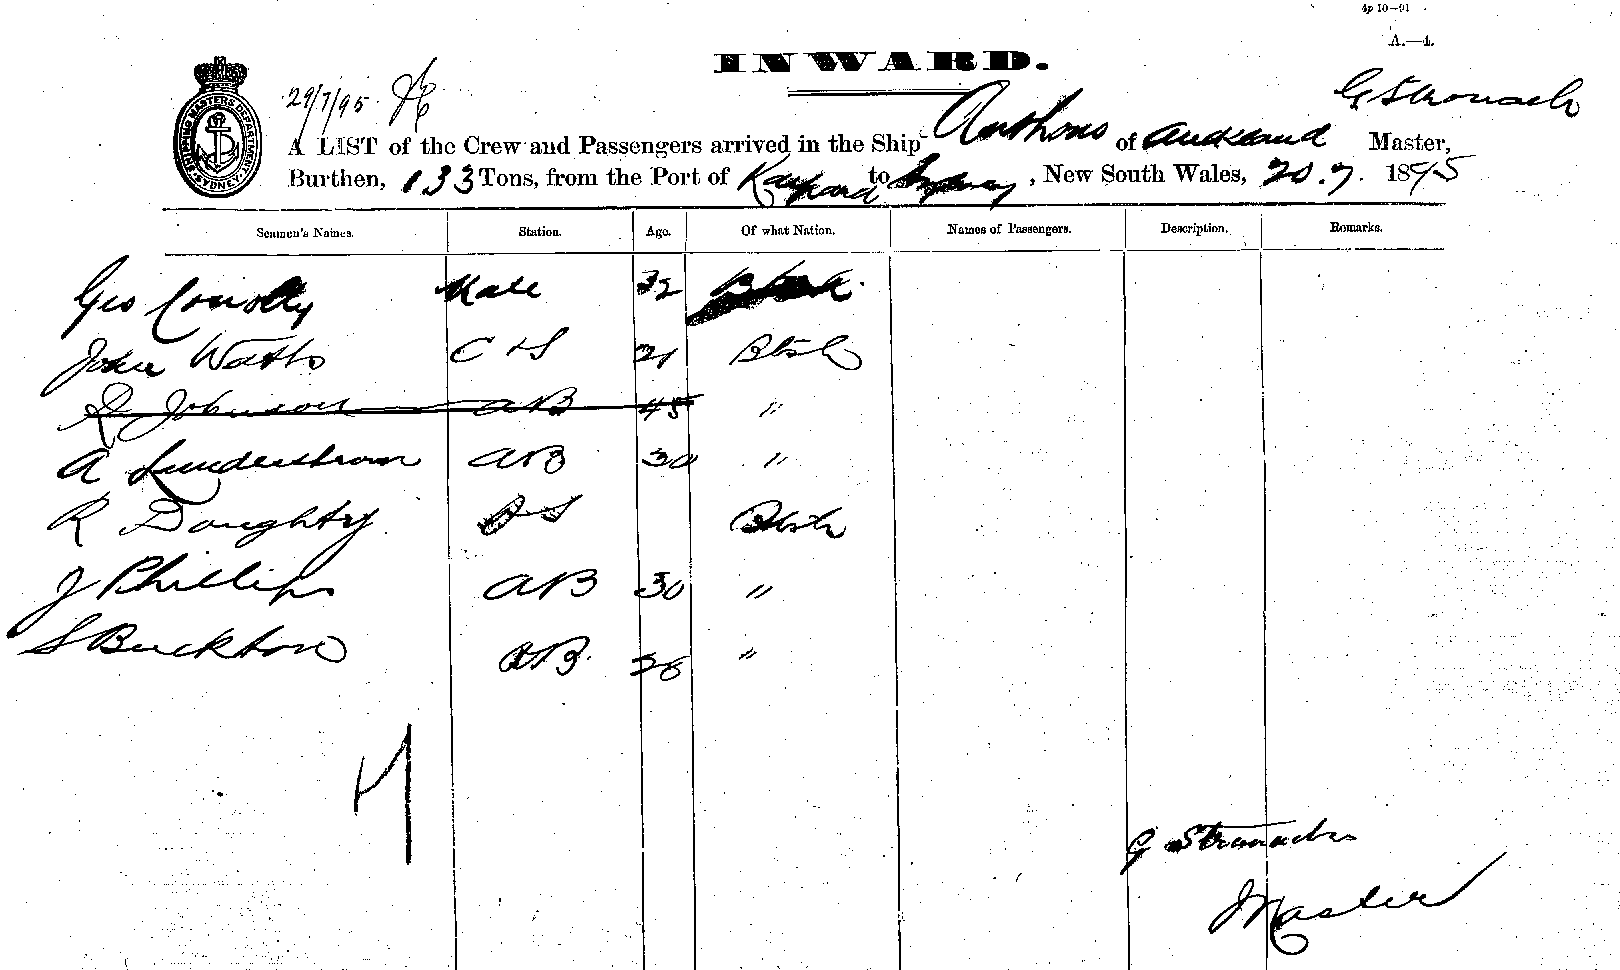 4p 10—91
A.—4.
INWARD.
SHIPPING MASTERS DEPARTMENT SYDNEY
29/7/95
G Stronach
A LIST of the Crew and Passengers arrived in the Ship of Auckland Master,
Burthen, 133 Tons, from the Port of to Sydney, New South Wales, 20.7. 1895
Seamen's Names. Station. Age. Of what Nation. Names of Passengers. Description. Remarks.
Geo Conolly Mate 32
John Watts C & S 21 Btsh
R Johnson AB 45 "
A Lunderstrom AB 30 "
R Doughty OS Btsh
J Phillips AB 30 "
S Buckton AB 28 "
7
G Stronach
Master